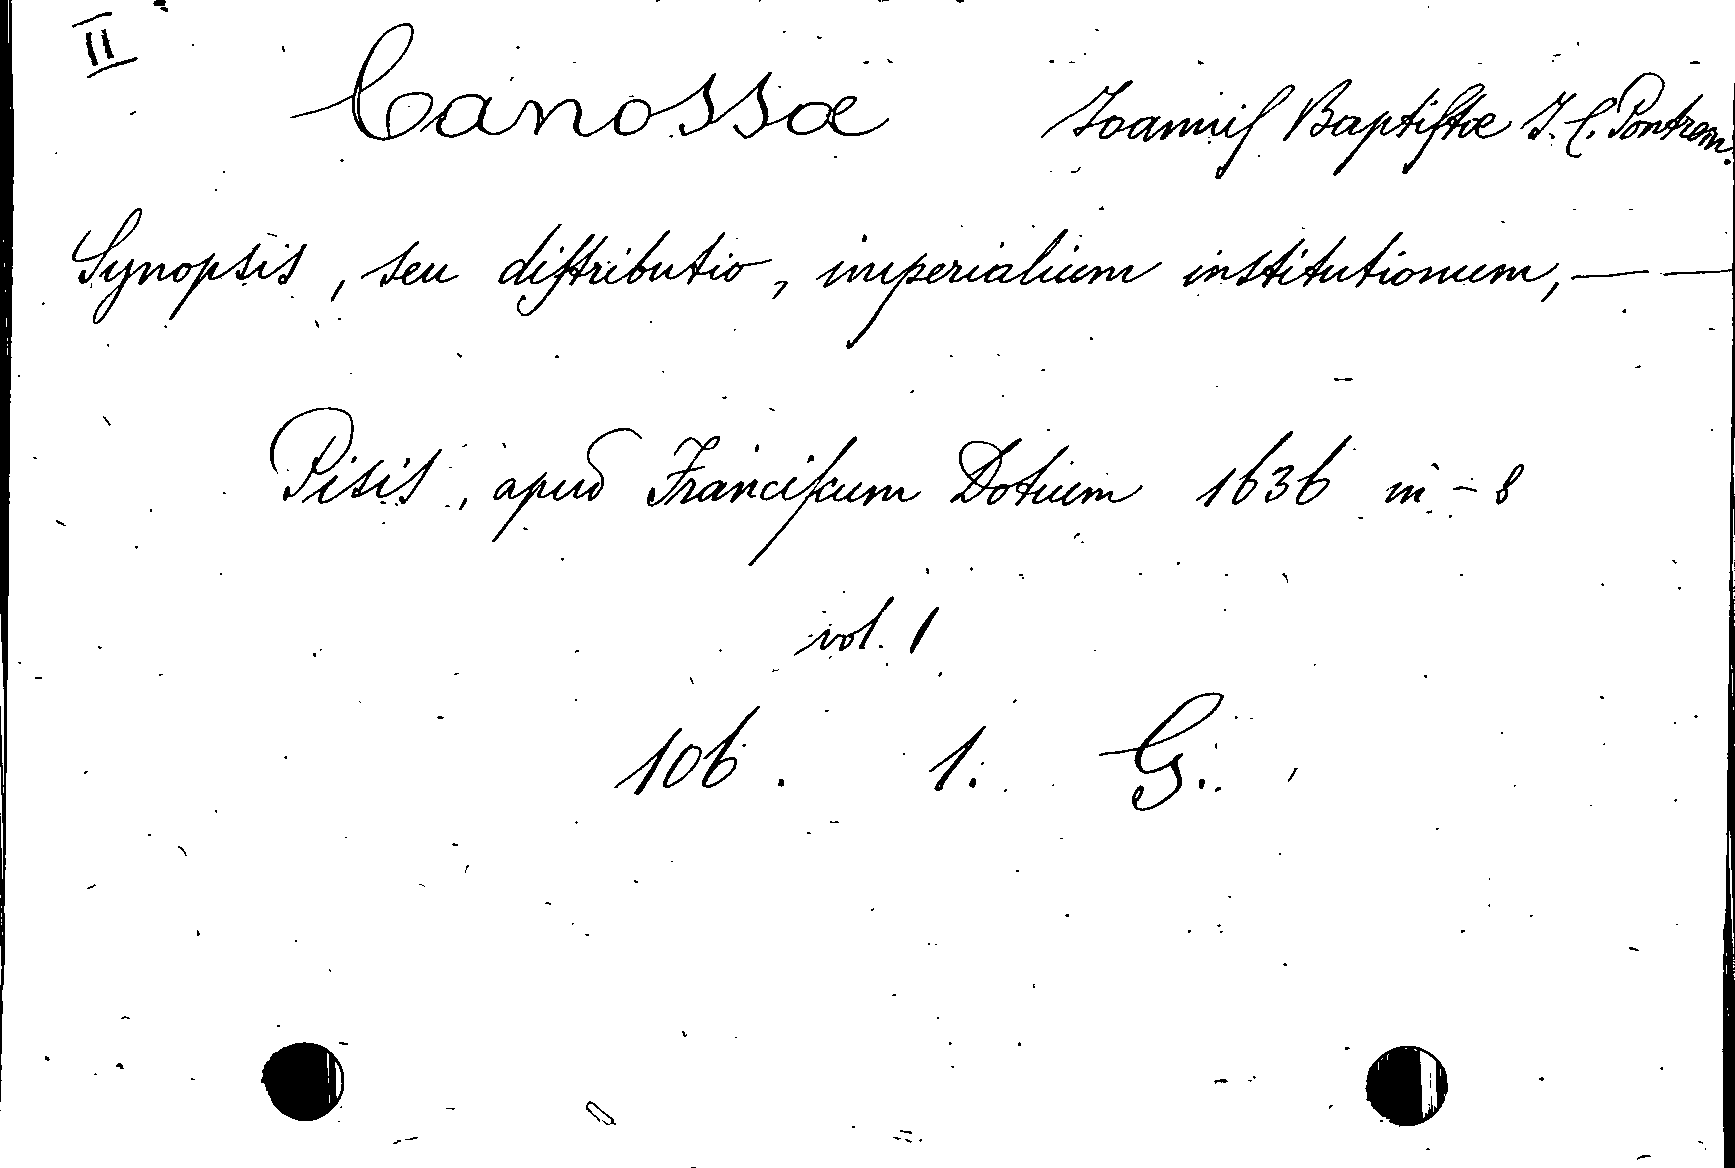 II
Canossæ Joannis Baptistæ J. C. Pontrem.
Synopsis, seu distributio, imperialium institutionum, — —
Pisis, apud Franciscum Dotium 1636 in-8
vol. 1
106. 1. G.